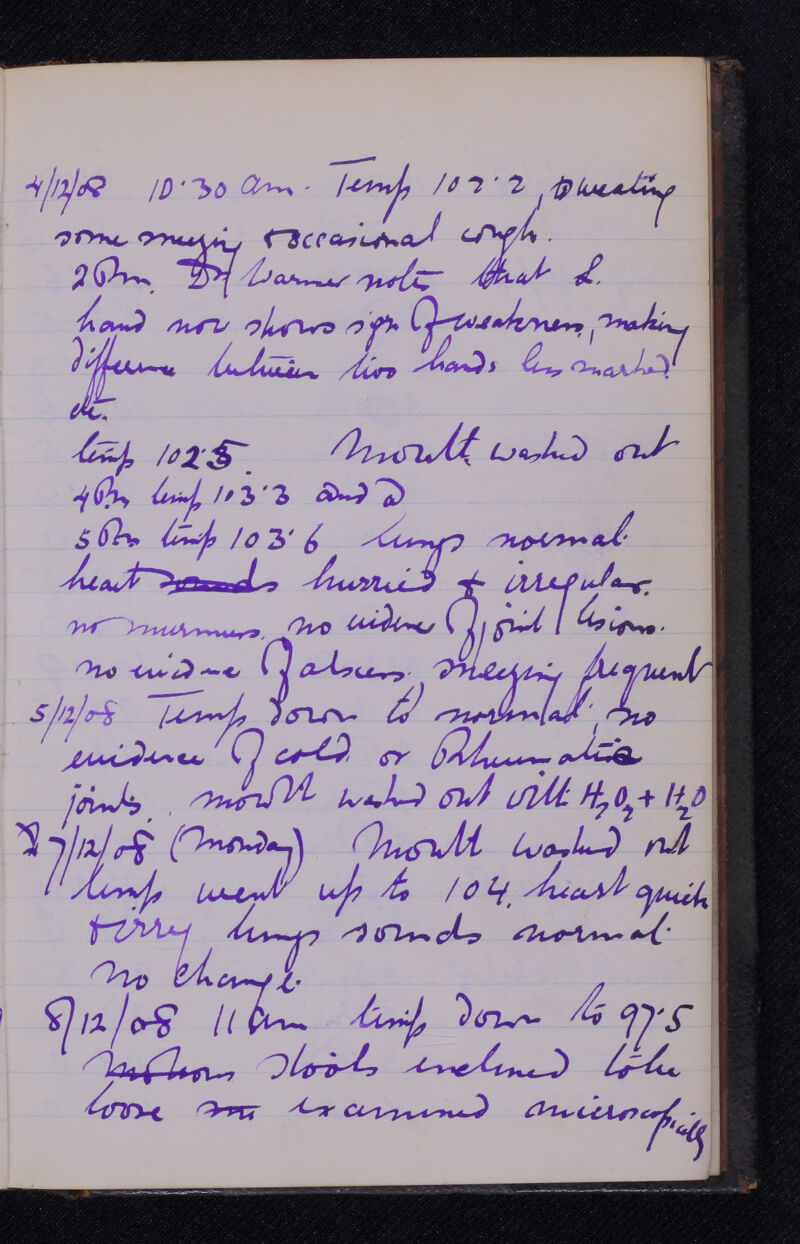 4/12/08 10·30 am. Temp 102·2, sweating
some sneezing & occasional cough.
2 Pm. Dr Warner notes that L.
hand now shows sign of weakness, making
difference between two hands less marked.
etc.
temp 102·5. Mouth washed out
4 Pm temp 103·3 and
5 Pm temp 103·6 lungs normal.
heart sounds hurried & irregular.
no murmurs. no evidence of joint lesions.
no evidence of abscess, sneezing frequent
5/12/08 Temp down to normal, no
evidence of cold or Rheumatic
joints. mouth washed out with H2O2 + H2O
7/12/08 (Monday) Mouth washed out
temp went up to 104. heart quick
& irreg lungs sounds normal.
No change.
8/12/08 11 am temp down to 97·5
Motions stools inclined to be
loose examined microscopically